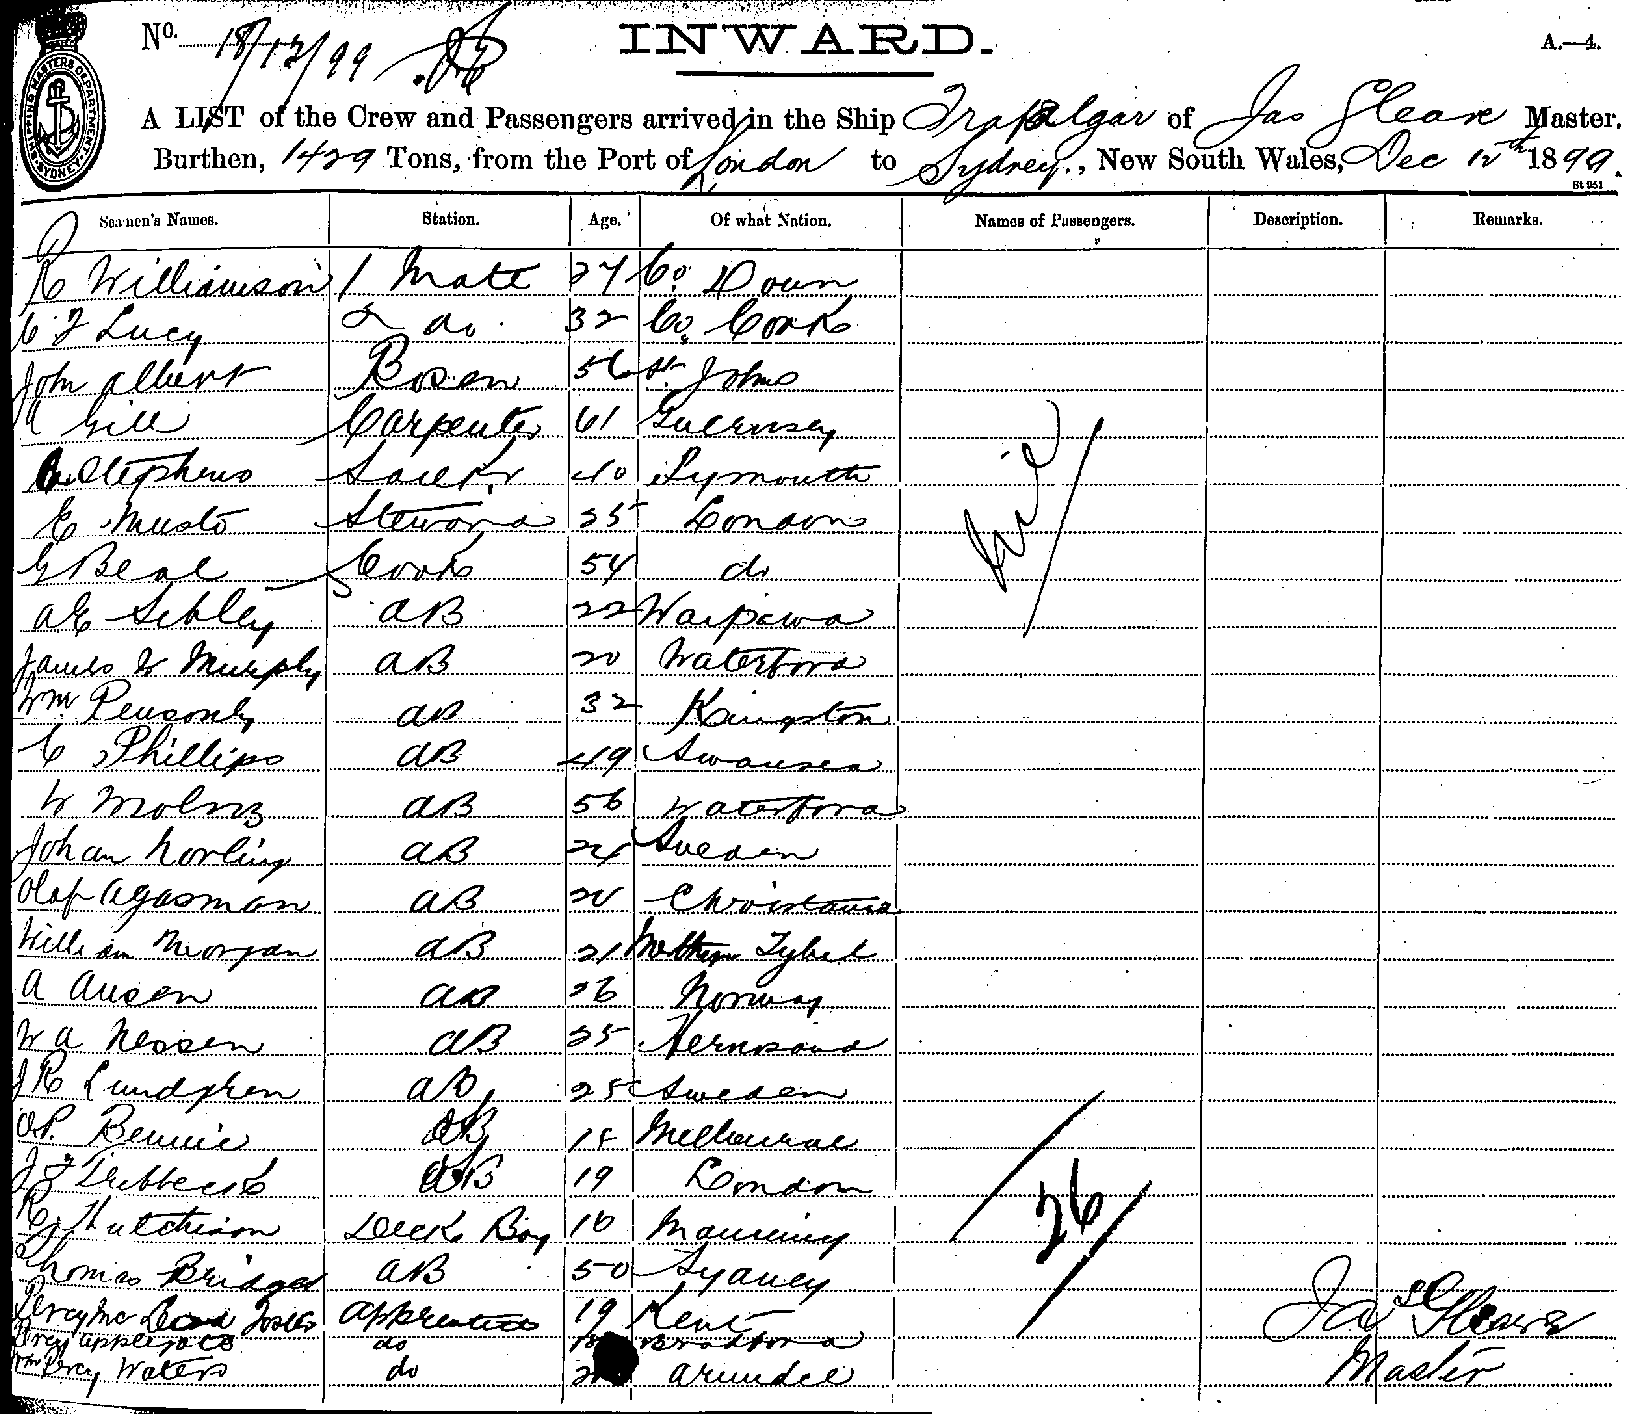 No. 18/12/99
INWARD.
A.—4.
SHIPPING MASTERS DEPARTMENT SYDNEY
A LIST of the Crew and Passengers arrived in the Ship Trafalgar of Jas Gleave Master.
Burthen, 1429 Tons, from the Port of London to Sydney, New South Wales, Dec 15th 1899.
St 951
Seamen's Names. Station. Age. Of what Nation. Names of Passengers. Description. Remarks.
R Williamson 1 Mate 27 Co. Down
C F Lucy 2 do. 32 Co. Cork
John Albert Bosen 56 St Johns
A Gill Carpenter 61 Guernsey
Stephens Sailkr 40 Plymouth
E Musto Steward 25 London
G Beal Cook 54 do
A E Sibley AB 22 Waipawa
James W Murphy AB 20 Waterford
Wm Pensonby AB 32 Kingston
C Phillips AB 49 Swansea
W AB 56 Waterford
Johan Norling AB 24 Sweden
Olaf Agasman AB 20 Christiania
William Morgan AB 21 Methyr Tydvil
A Ausen AB 26 Norway
W A Nessen AB 25 Hernosand
J R Lundgren AB 25 Sweden
O P. Bennie OB 18 Melbourne
J F Tribbeck OB 19 London
R G Hutchison Deck Boy 16 Manning
Thomas Bridges AB 50 Sydney
Percy Mc Foster Apprentice 19 Kent
Percy Applejace do Bradford
Wm Percy Waters do Arundel
Nil
26
Jas Gleave
Master